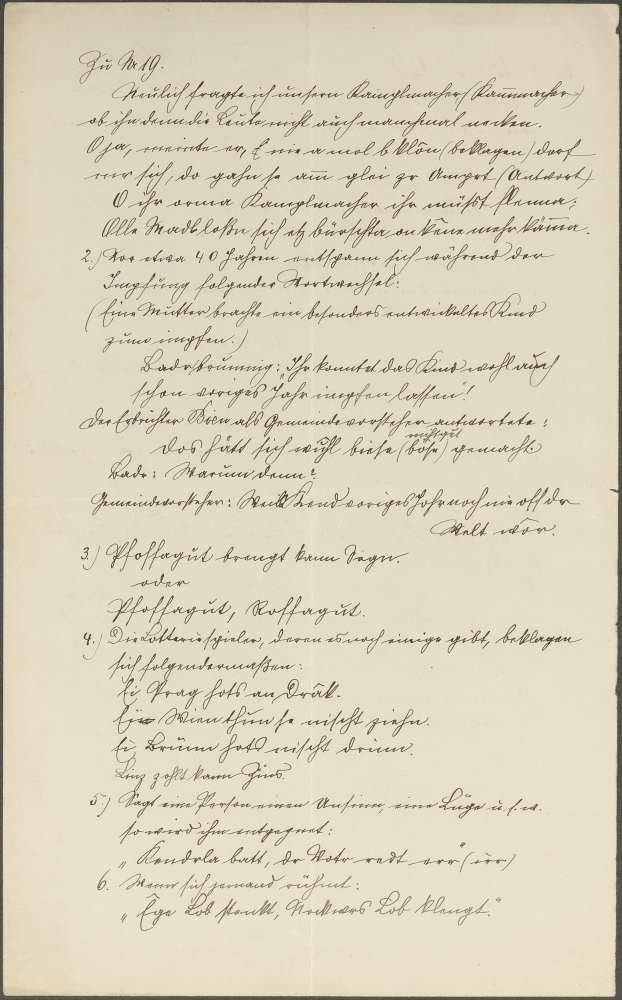 Zu Nr. 19.
Neulich fragte ich unsern Kamplmacher (Kammmacher)
ob ihn denn die Leute nicht auch manchmal necken.
O ja, meinte er, E nie a mol b'klôn (beklagen) dorf
mer sich, do gahn se am glei zr Amprt (Antwort)
O ihr orma Kamplmacher ihr müsst flenna;
Olle Madl loßn sich etz bürschta, on kene mehr kämma.
2.) Vor etwa 40 Jahren entspann sich während der
Impfung folgender Wortwechsel:
(Eine Mutter brachte ein besonders entwickeltes Kind
zum impfen.)
Badr, brummig: „Ihr konntet das Kind wohl auch
schon voriges Jahr impfen lassen"!
Der Erbrichter als Gemeindevorsteher antwortete:
nicht gut
Dos hätt sich wuhl biese (böse) gemacht
Badr: Warum denn?
Gemeindevorsteher: Weils Kend voriges Johr noch nie off dr
Welt wôr.
3.) Pfoffagut brengt kann Segn.
oder
Pfoffagut, Roffagut.
4.) Die Lotteriespieler, deren es noch einige gibt, beklagen
sich folgendermaßen:
Ei Prag hots an Dräk.
Ei Wien thun se nischt ziehn.
Ei Brünn hots nischt drinn.
Linz zohlt kann Zins.
5.) Sagt eine Person einen Unsinn, eine Lüge u. s. w.
so wird ihm entgegnet:
„Kendrla batt, dr Votr redt err" (irr)
6. Wenn sich jemand rühmt:
„Ege Lob stenkt, Nockwrs Lob klengt."